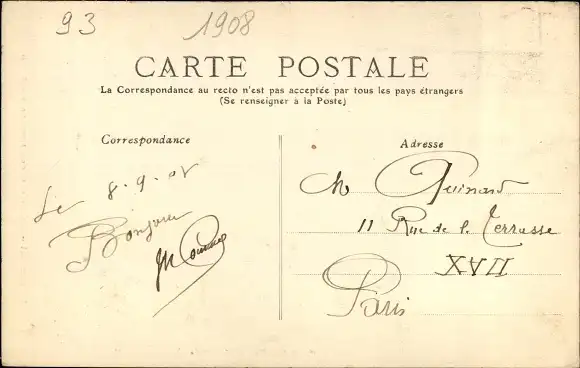 93 1908
CARTE POSTALE
La Correspondance au recto n'est pas acceptée par tous les pays étrangers
(Se renseigner à la Poste)
Correspondance
Le 8-9-08
Bonjour
Adresse
M Guinard
11 Rue de la Terrasse
XVII
Paris